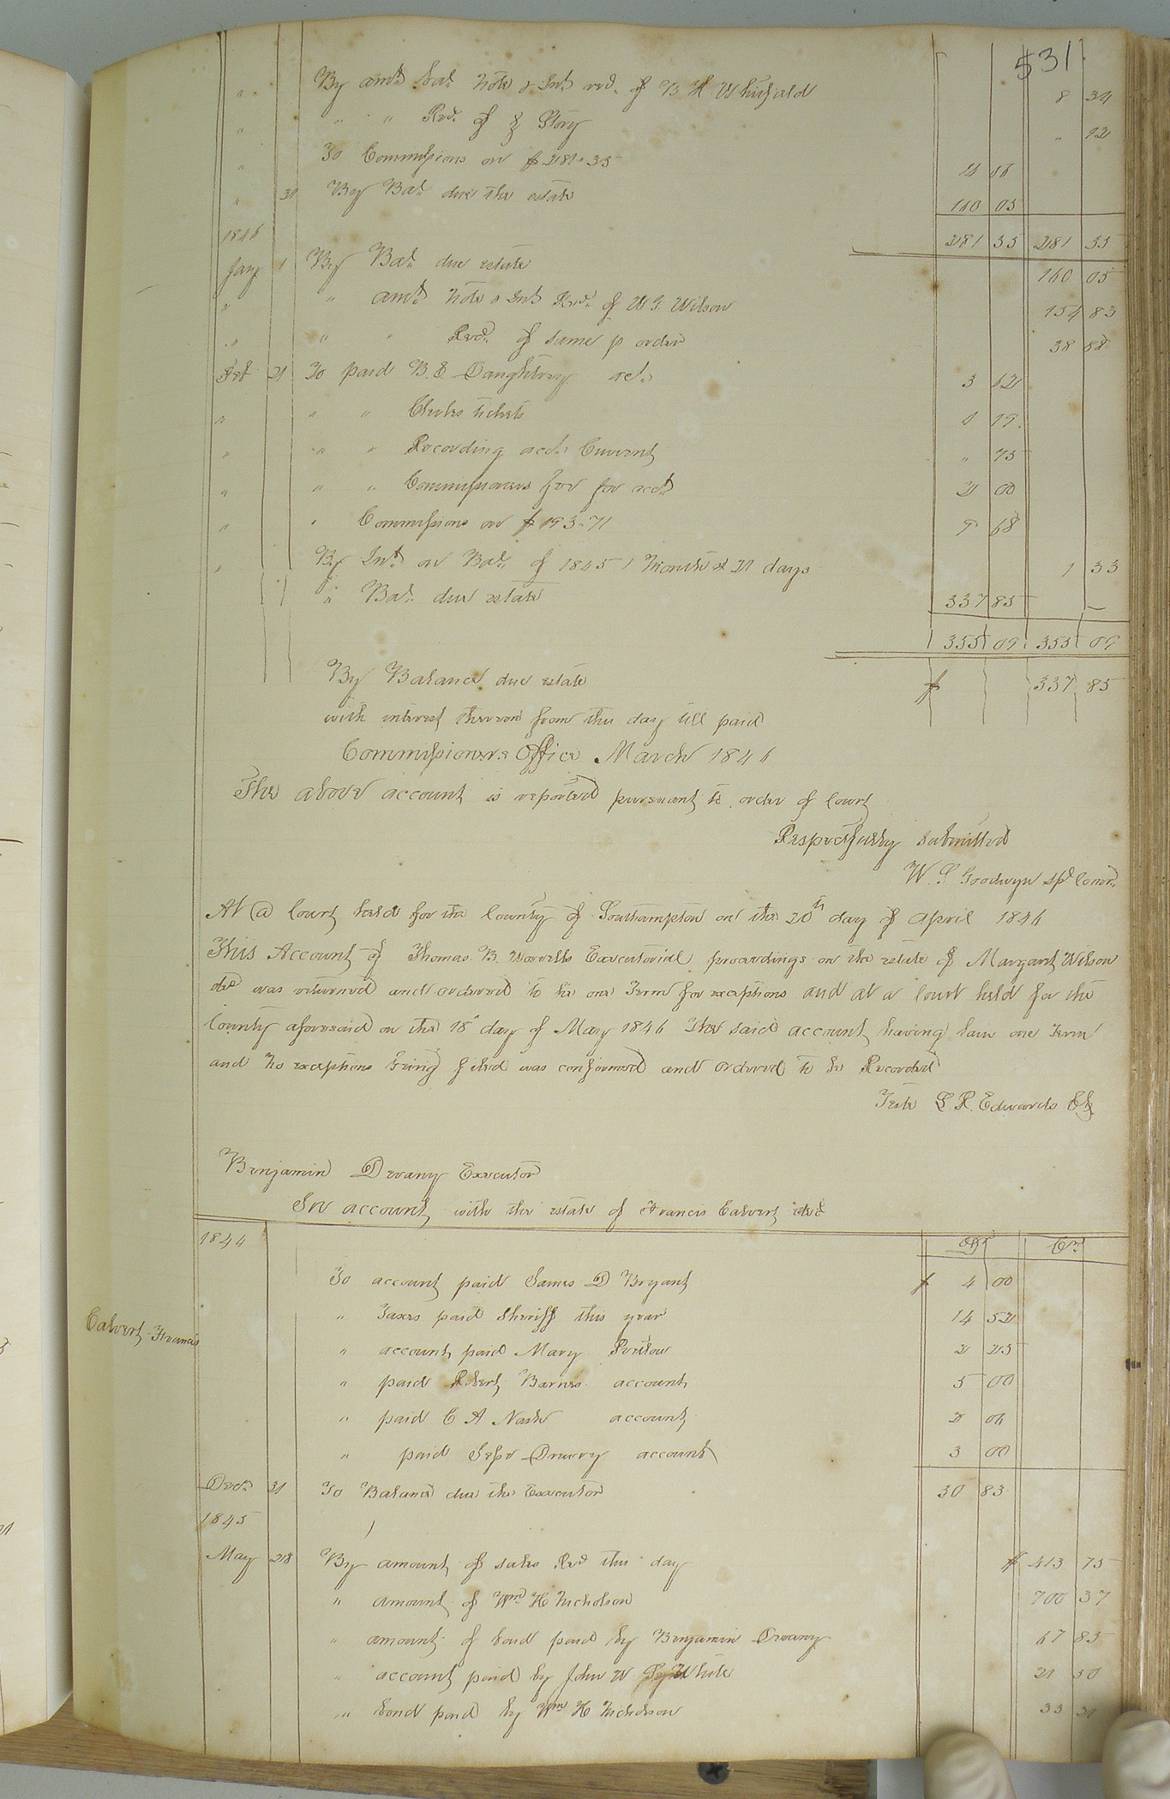 531
" By amt. Bal. Note & Int. red. of B H Whitfield 8 34
" " " Recd. of Story " 12
" To Commissions on $281.35
" 31 By Bal. due the estate 160 05
281 35 281 35
1846
Jany 1 By Bal. due estate 160 05
" " amt. Note & Int. Recd. of W G Wilson 154 83
" " " Recd. of same p order 38 88
Feb 21 To paid B. D. Daughtrey act. 3 62
" " " Clerks tickets
" " " Recording acct. Current " 75
" " " Commissioners fee for acct 2 00
" " Commissions on $193.71 9 68
" By Int. on Bal. of 1845 1 Month & 21 days 1 33
" Bal. due estate 337 85
355 09 355 09
By Balance due estate $ 337 85
with interest thereon from this day till paid
Commissioners Office March 1846
The above account is reported pursuant to order of Court
Respectfully submitted
W. S. Goodwyn spl Comr.
At a Court held for the County of Southampton on the 20th day of April 1846
This Account of Thomas B. Worrells Executorial proceedings on the estate of Margaret Wilson
decd was returned and ordered to lie one Term for exceptions and at a Court held for the
County aforesaid on the 18" day of May 1846 The said account having lain one Term
and No exceptions being filed was confirmed and ordered to be Recorded
Teste L. R. Edwards Clk
Benjamin Drewry Executor
In account with the estate of Francis Calvert decd
1844 Dr. Cr.
To account paid James D Bryant $ 4 00
" Taxes paid Sheriff this year 14 52
Calvert Francis
" account paid Mary 2 25
" paid Robert Barnes account 5 00
" paid C A Nash account 2 06
" paid Drewry account 3 00
Decr. 31 To Balance due the Executor 30 83
1845
May 28 By amount of sales Recd this day $ 413 75
" amount of Wm H Nicholson 700 37
" amount of bond paid by Benjamin Drewry 67 85
" account paid by John W White 21 50
" bond paid by Wm H Nicholson